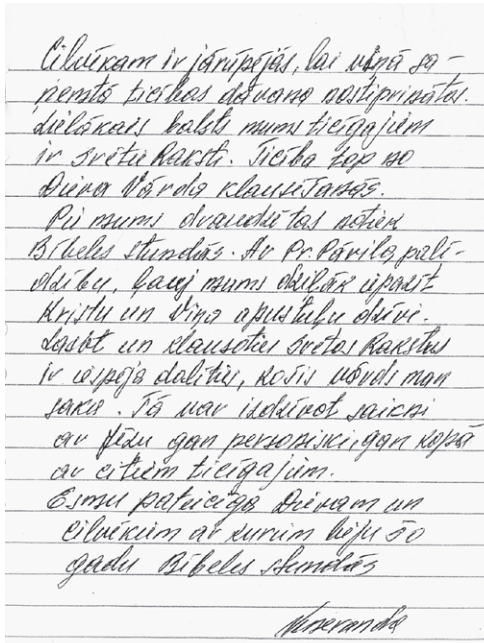 Cilvēkam ir jārūpējās, lai viņā sa-
ņemtā ticības dāvana nostiprinātos.
Lielākais balsts mums ticīgajiem
ir svētie Raksti. Ticība top no
Dieva Vārda klausīšanās.
Pie mums draudzītas notiek
Bībeles stundās. Ar Pr. Pāvila palī-
dzību, ļauj mums dziļāk iepazīt
Kristu un Viņa apustuļu dzīvi.
Lasot un klausoties svētos Rakstus
ir iespēja dalīties, košis vārds man
saka. Tā var izdzīvot saikni
ar Jēzu gan personiski, gan kopā
ar citiem ticīgajiem.
Esmu pateicīga Dievam un
cilvēkiem ar kuriem biju šo
gadu Bībeles stundās